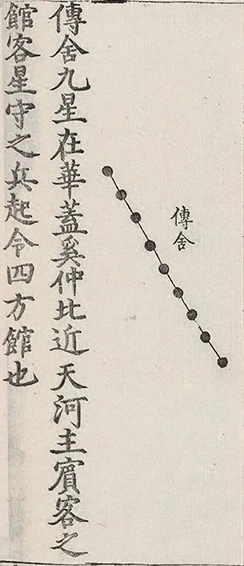 傳舍
傳舍九星在華蓋奚仲比近天河主賓客之
館客星守之兵起令四方館也